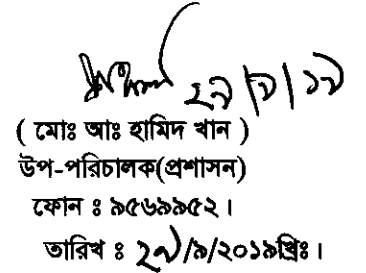 ২৯/৯/১৯
( মোঃ আঃ হামিদ খান )
উপ-পরিচালক(প্রশাসন)
ফোন ঃ ৯৫৬৯৯৫২।
তারিখ ঃ ২৯/৯/২০১৯খ্রিঃ।